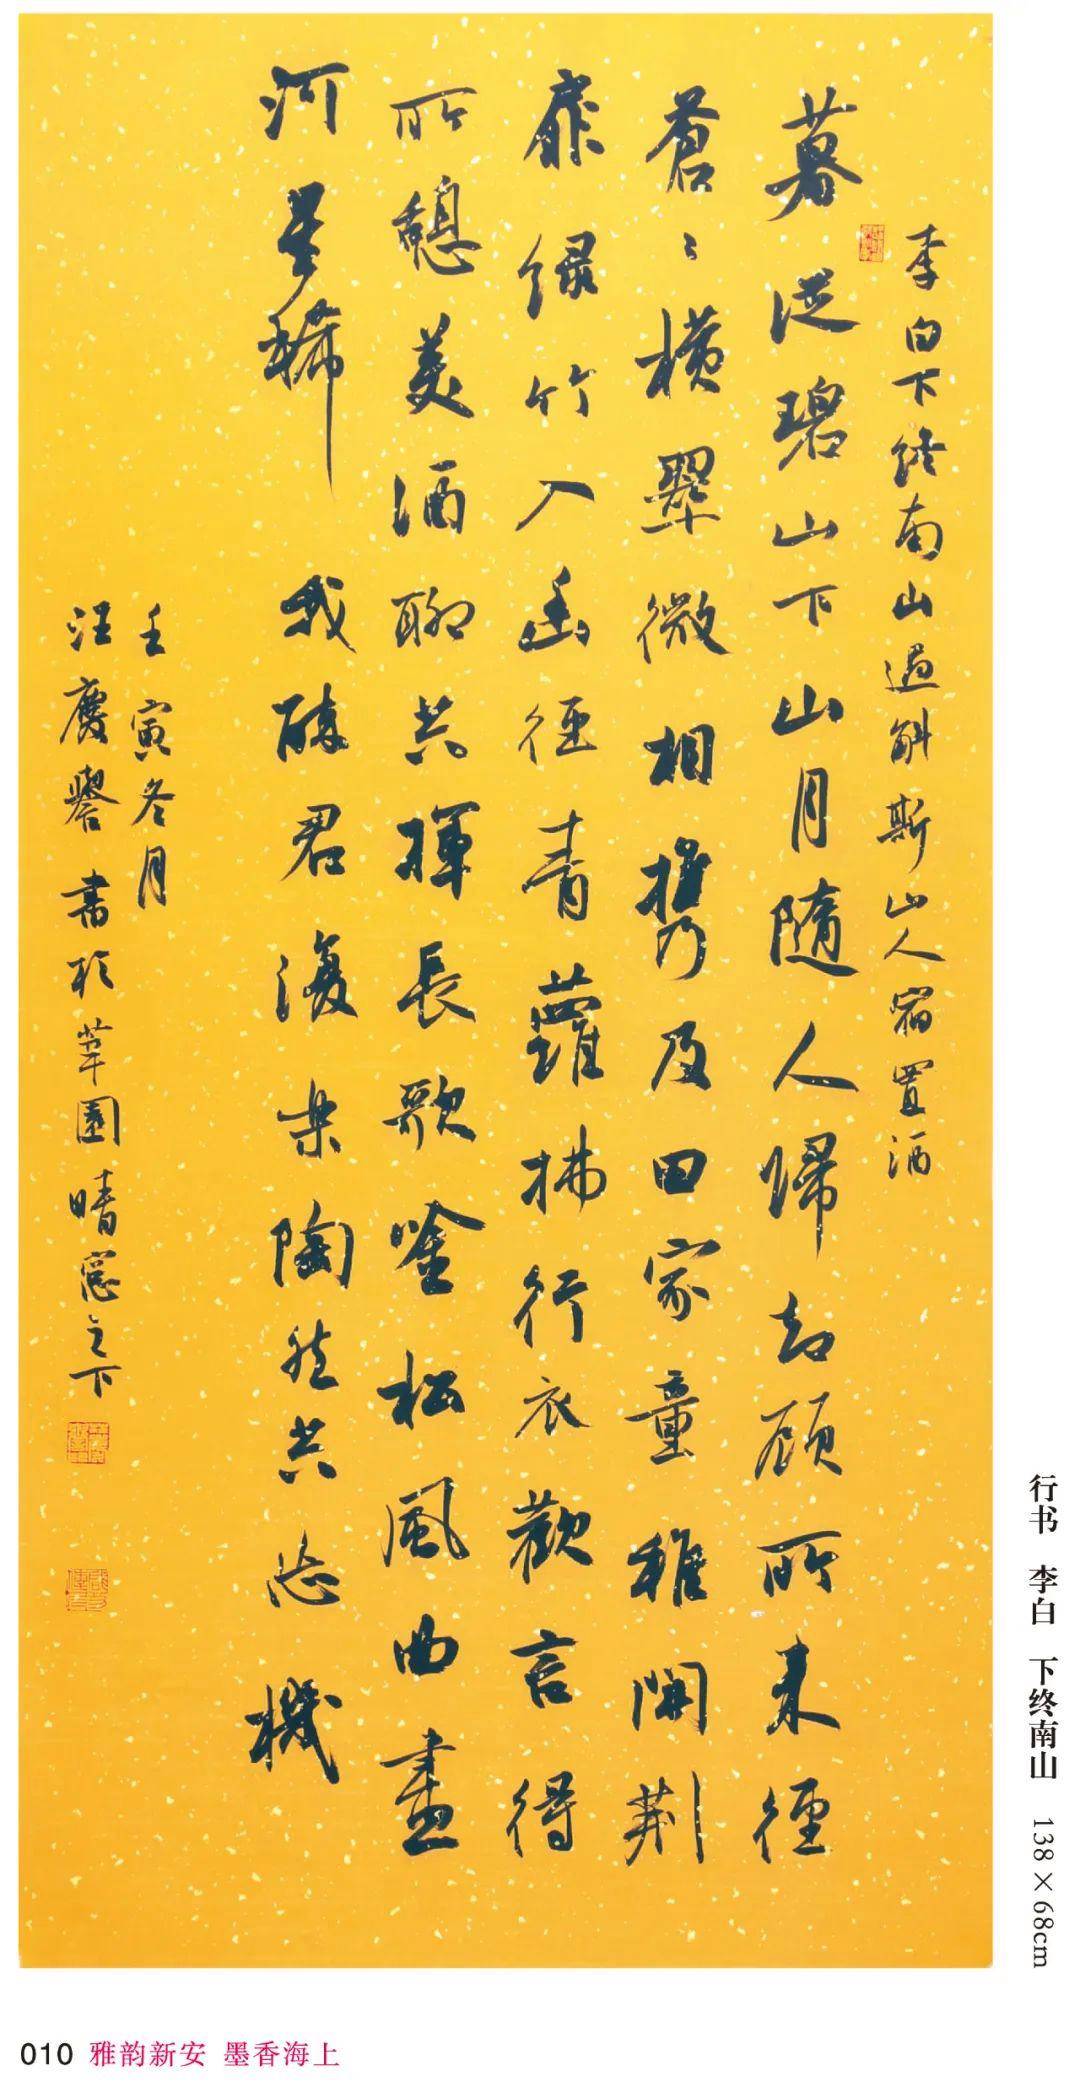 李白下終南山過斛斯山人宿置酒
暮從碧山下山月隨人歸却顧所来徑
蒼〻橫翠微相携及田家童稚開荆
扉绿竹入幽徑青蘿拂行衣歡言得
所憩美酒聊共揮長歌唫松風曲盡
河星稀 我醉君復樂陶然共忘機
壬寅冬月
汪慶譽書於莘園晴窓之下
行书 李白 下终南山 138×68cm
010 雅韵新安 墨香海上